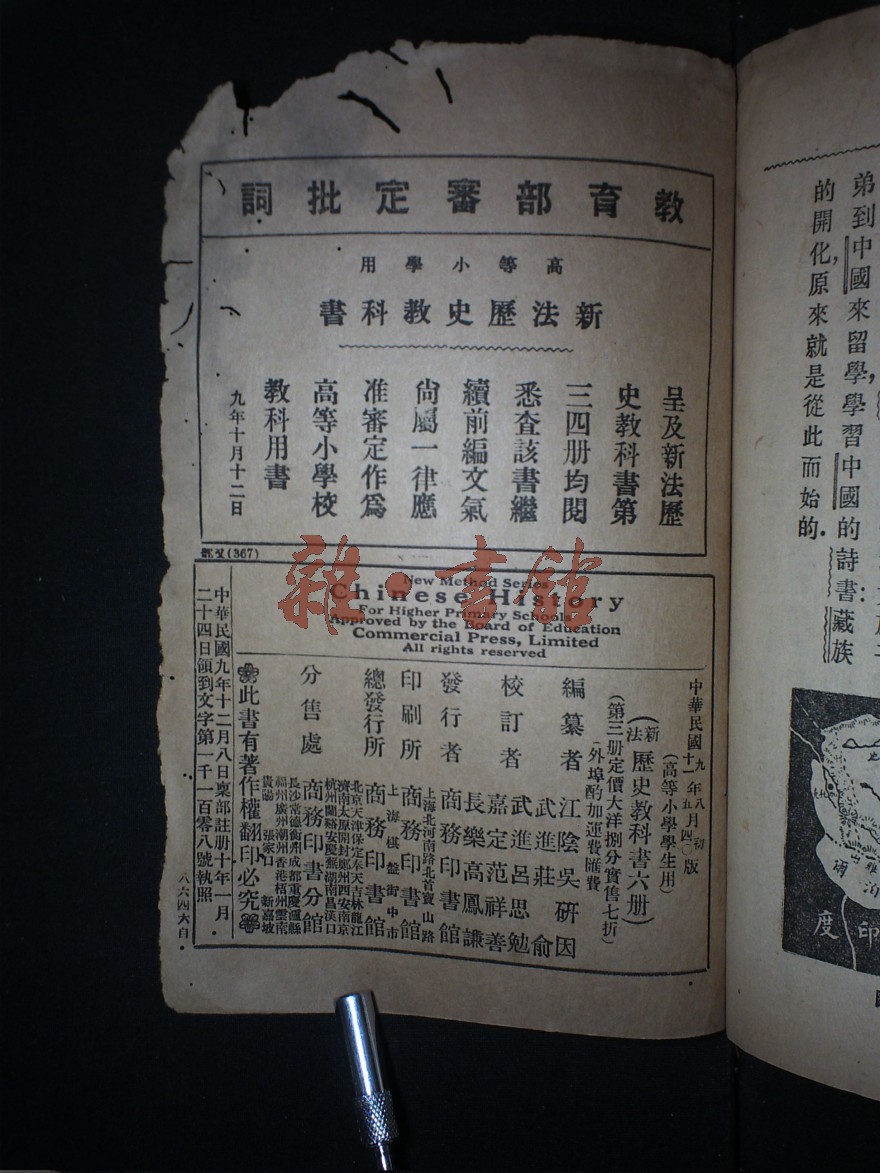 教育部審定批詞
高等小學用
新法歷史教科書
呈及新法歷
史教科書第
三四册均閱
悉查該書繼
續前編文氣
尙屬一律應
准審定作爲
高等小學校
教科用書
九年十月十二日
(367)
New Method Series
Chinese History
For Higher Primary Schools
Approved by the Board of Education
Commercial Press, Limited
All rights reserved
雜·書館
中華民國九年八月初版
(高等小學學生用)
新法歷史教科書六册
(第三册定價大洋捌分實售七折)
(外埠酌加運費匯費)
編纂者
江陰吳研因
武進莊俞
校訂者
武進呂思勉
嘉定范祥善
長樂高鳳謙
發行者
商務印書館
印刷所
上海北河南路北首寶山路
商務印書館
總發行所
上海棋盤街中市
商務印書館
分售處
北京天津保定奉天吉林龍江
濟南太原開封鄭州西安南京
杭州蘭谿安慶蕪湖南昌漢口
商務印書分館
長沙常德衡州成都重慶瀘縣
福州廣州潮州香港梧州雲南
貴陽張家口新嘉坡
此書有著作權翻印必究
中華民國九年十二月八日稟部註册十年一月
二十四日領到文字第一千一百零八號執照
八六四大自
弟到中國來留學,學習中國的詩書;藏族
的開化,原來就是從此而始的.
印度